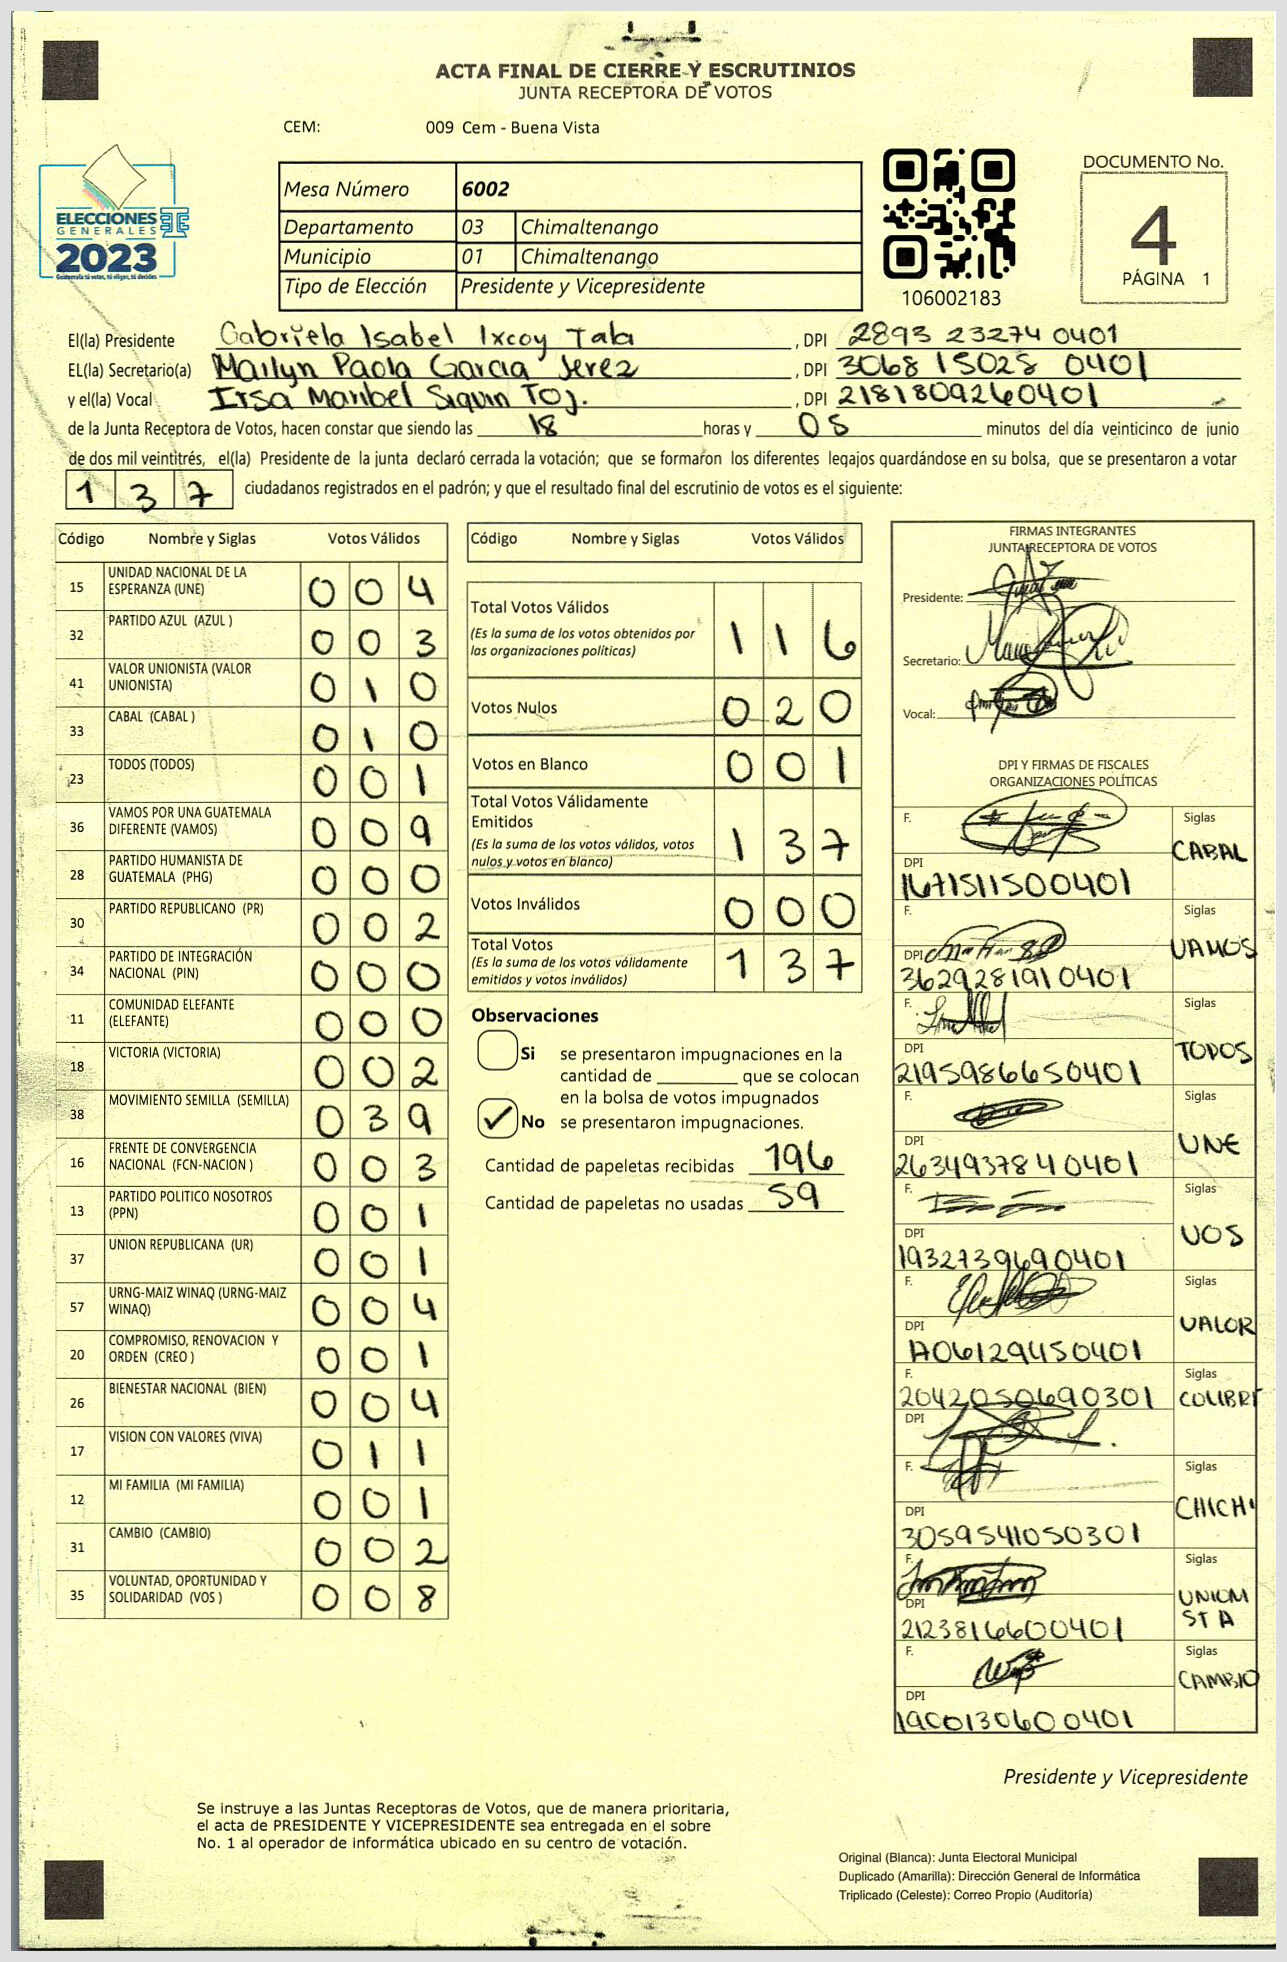 ACTA FINAL DE CIERRE Y ESCRUTINIOS
JUNTA RECEPTORA DE VOTOS
CEM: 009 Cem - Buena Vista
ELECCIONES
GENERALES
2023
Guatemala tú votas, tú eliges, tú decides
Mesa Número 6002
Departamento 03 Chimaltenango
Municipio 01 Chimaltenango
Tipo de Elección Presidente y Vicepresidente
106002183
DOCUMENTO No.
4
PÁGINA 1
El(la) Presidente Gabriela Isabel Ixcoy Tala , DPI 2893 23274 0401
EL(la) Secretario(a) Mailyn Paola Garcia Jerez , DPI 3068 15028 0401
y el(la) Vocal Irsa Maribel Siquin Toj. , DPI 2181809260401
de la Junta Receptora de Votos, hacen constar que siendo las 18 horas y 05 minutos del día veinticinco de junio
de dos mil veintitrés, el(la) Presidente de la junta declaró cerrada la votación; que se formaron los diferentes legajos guardándose en su bolsa, que se presentaron a votar
137 ciudadanos registrados en el padrón; y que el resultado final del escrutinio de votos es el siguiente:
Código Nombre y Siglas Votos Válidos
15 UNIDAD NACIONAL DE LA ESPERANZA (UNE) 004
32 PARTIDO AZUL (AZUL ) 003
41 VALOR UNIONISTA (VALOR UNIONISTA) 010
33 CABAL (CABAL ) 010
23 TODOS (TODOS) 001
36 VAMOS POR UNA GUATEMALA DIFERENTE (VAMOS) 009
28 PARTIDO HUMANISTA DE GUATEMALA (PHG) 000
30 PARTIDO REPUBLICANO (PR) 002
34 PARTIDO DE INTEGRACIÓN NACIONAL (PIN) 000
11 COMUNIDAD ELEFANTE (ELEFANTE) 000
18 VICTORIA (VICTORIA) 002
38 MOVIMIENTO SEMILLA (SEMILLA) 039
16 FRENTE DE CONVERGENCIA NACIONAL (FCN-NACION ) 003
13 PARTIDO POLITICO NOSOTROS (PPN) 001
37 UNION REPUBLICANA (UR) 001
57 URNG-MAIZ WINAQ (URNG-MAIZ WINAQ) 004
20 COMPROMISO, RENOVACION Y ORDEN (CREO ) 001
26 BIENESTAR NACIONAL (BIEN) 004
17 VISION CON VALORES (VIVA) 011
12 MI FAMILIA (MI FAMILIA) 001
31 CAMBIO (CAMBIO) 002
35 VOLUNTAD, OPORTUNIDAD Y SOLIDARIDAD (VOS ) 008
Código Nombre y Siglas Votos Válidos
Total Votos Válidos 116
(Es la suma de los votos obtenidos por
las organizaciones políticas)
Votos Nulos 020
Votos en Blanco 001
Total Votos Válidamente
Emitidos 137
(Es la suma de los votos válidos, votos
nulos y votos en blanco)
Votos Inválidos 000
Total Votos 137
(Es la suma de los votos válidamente
emitidos y votos inválidos)
Observaciones
Si se presentaron impugnaciones en la
cantidad de ________ que se colocan
en la bolsa de votos impugnados
✓ No se presentaron impugnaciones.
Cantidad de papeletas recibidas 196
Cantidad de papeletas no usadas 59
FIRMAS INTEGRANTES
JUNTA RECEPTORA DE VOTOS
Presidente:
Secretario:
Vocal:
DPI Y FIRMAS DE FISCALES
ORGANIZACIONES POLÍTICAS
F. Siglas CABAL
DPI 1671511500401
F. Siglas VAMOS
DPI 3629281910401
F. Siglas TODOS
DPI 2195986650401
F. Siglas UNE
DPI 2634937840401
F. Siglas VOS
DPI 1932739690401
F. Siglas VALOR
DPI 1706129450401
F. 2042050690301 Siglas COLIBRI
DPI
F. Siglas CHICHI
DPI 3059541050301
F. Siglas UNIONISTA
DPI 2123816600401
F. Siglas CAMBIO
DPI 1900130600401
Presidente y Vicepresidente
Se instruye a las Juntas Receptoras de Votos, que de manera prioritaria,
el acta de PRESIDENTE Y VICEPRESIDENTE sea entregada en el sobre
No. 1 al operador de informática ubicado en su centro de votación.
Original (Blanca): Junta Electoral Municipal
Duplicado (Amarilla): Dirección General de Informática
Triplicado (Celeste): Correo Propio (Auditoría)